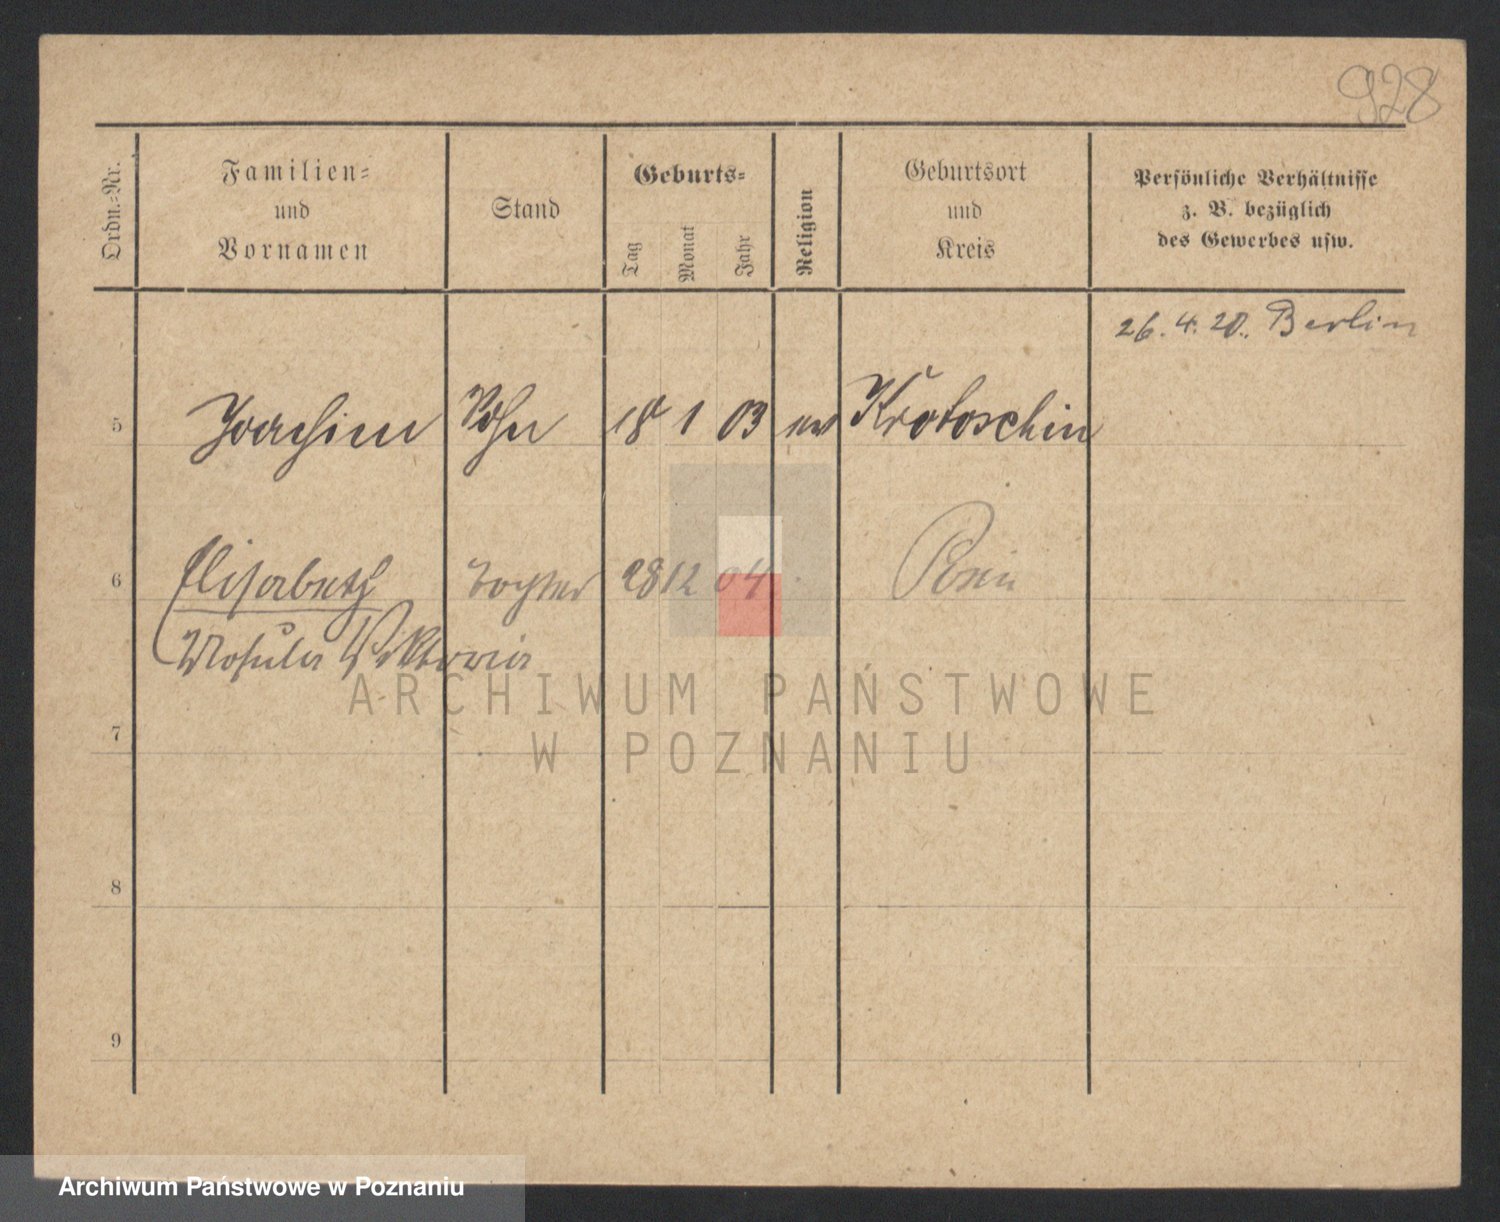 928
Ordn.-Nr.
Familien-
und
Vornamen
Stand
Geburts-
Tag
Monat
Jahr
Religion
Geburtsort
und
Kreis
Persönliche Verhältnisse
z. B. bezüglich
des Gewerbes usw.
26. 4. 20. Berlin
5 Joachim Sohn 18 1 03 ev Krotoschin
6 Elisabeth Tochter 28 12 04 Posen
Ursula Viktoria
7
8
9
ARCHIWUM PAŃSTWOWE
W POZNANIU
Archiwum Państwowe w Poznaniu